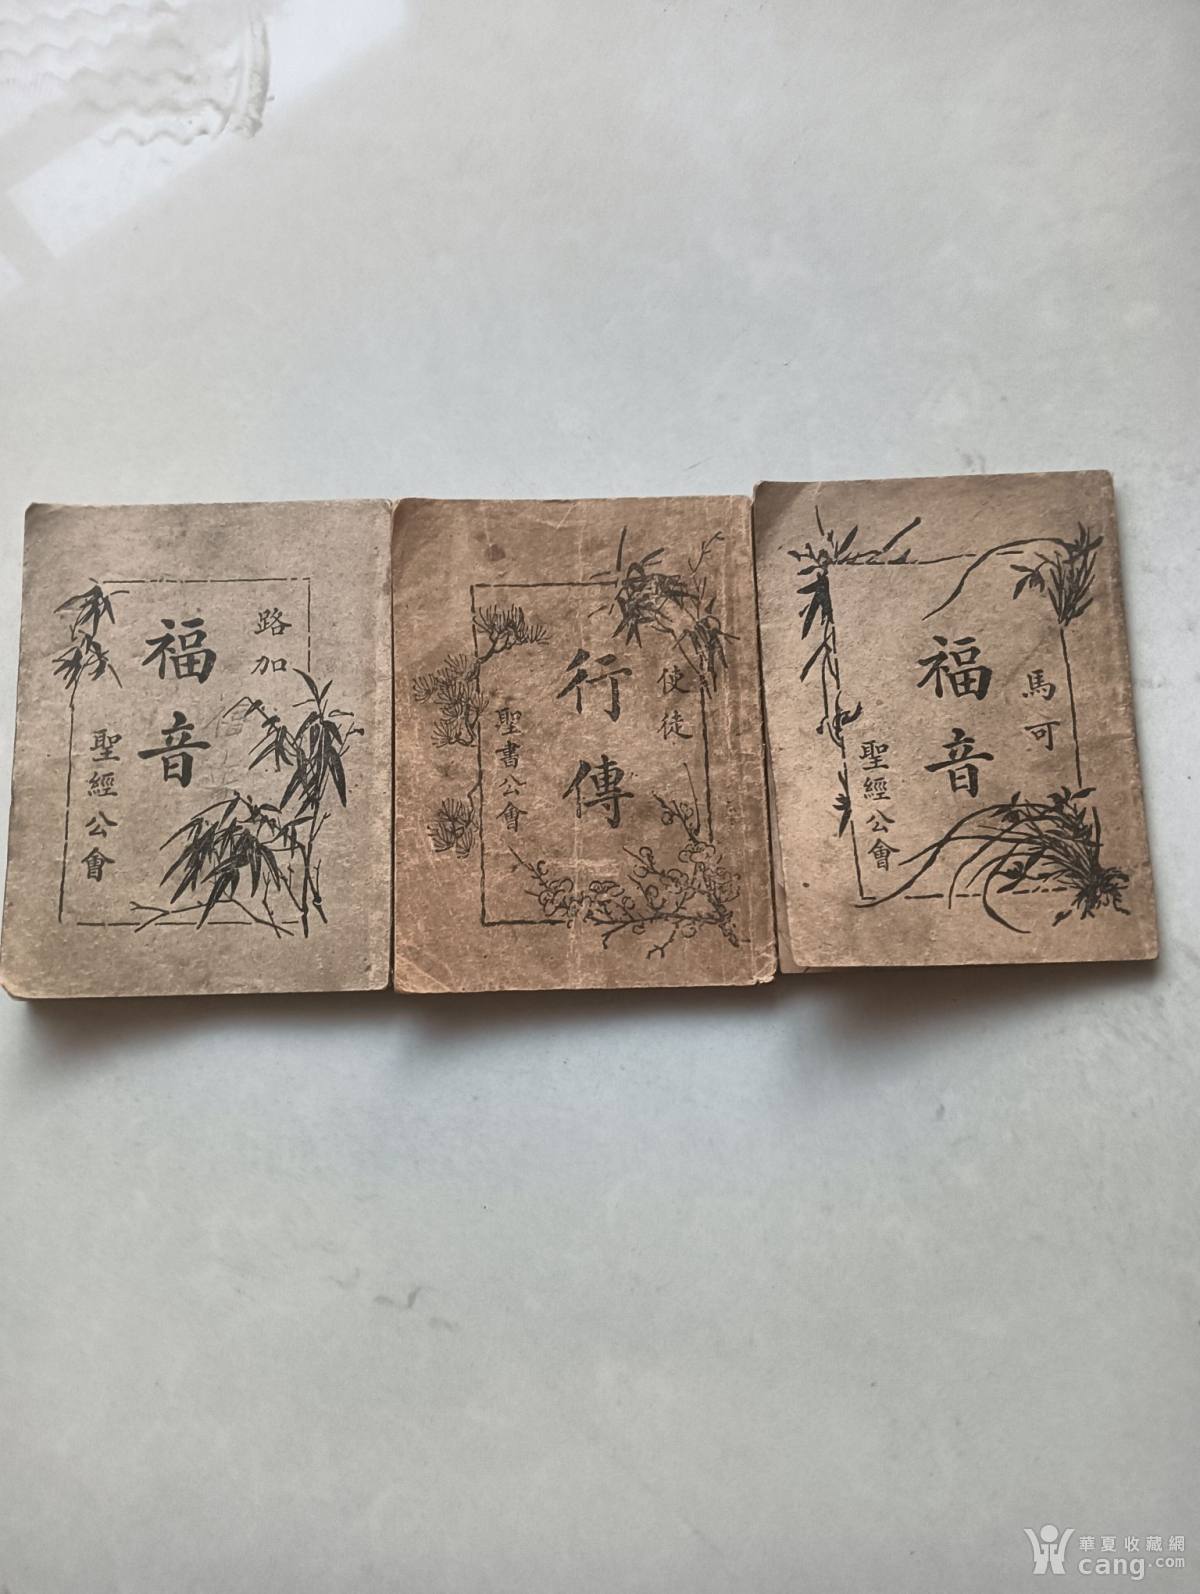 路加
福音
聖經公會
使徒
行傳
聖書公會
馬可
福音
聖經公會
華夏收藏網
cang.com